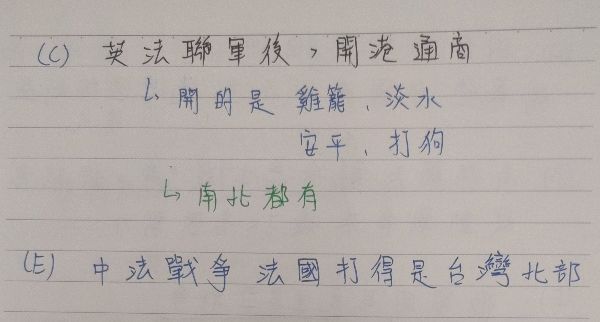 (C) 英法聯軍後，開港通商
↳ 開的是 雞籠、淡水
安平、打狗
↳ 南北都有
(E) 中法戰爭 法國打得是台灣北部